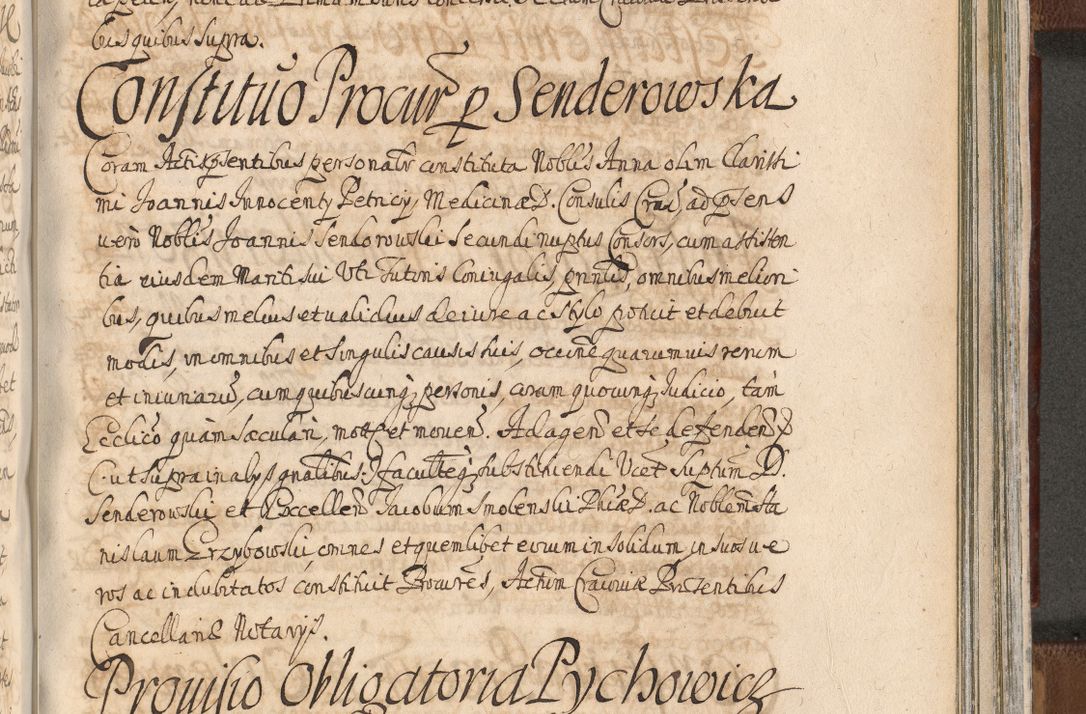 bus quibus supra.
Constituo Procur̃ p Senderowska
Coram Actis p̃sentibus personalr̃ constituta Nobl̃is Anna olim Clarissi
mi Joannis Innocenty Petricij, Medicinæ D. Consulis Crac̃, ad p̃sens
uero Nobl̃is Joannis Sendorowski secundi nuptus Consors, cum assisten
tia eiusdem Mariti sui Uti Tutoris Coniugalis, omnibus melion
bus, quibus melius et ualidius de iure ac stylo potuit et debuit
modis, in omnibus et singulis causis suis, occ̃ne quarumuis rerum
et iniuriarũ, cum quibuscunq; personis, coram quocunq; Iudicio, tam
Ecclico quam sæculari, mot̃ et mouen̄. Ad agen̄ et se defenden̄
C: ut supra in alys gñalibus:) facultẽq; substituendi Ucet Suptum D.
Senderowski et Excellen̄ Jacobum Smolenski Phiæ D. ac Noblem̃ Sta
nislaum Grzybowski, omnes et quemlibet eorum in solidum, in suos ue
ros ac indubitatos constituit Procures, Actum Cracouiæ Præsentibus
Cancellariæ Notarijs.
Prouisio Obligatoria Pychowicz